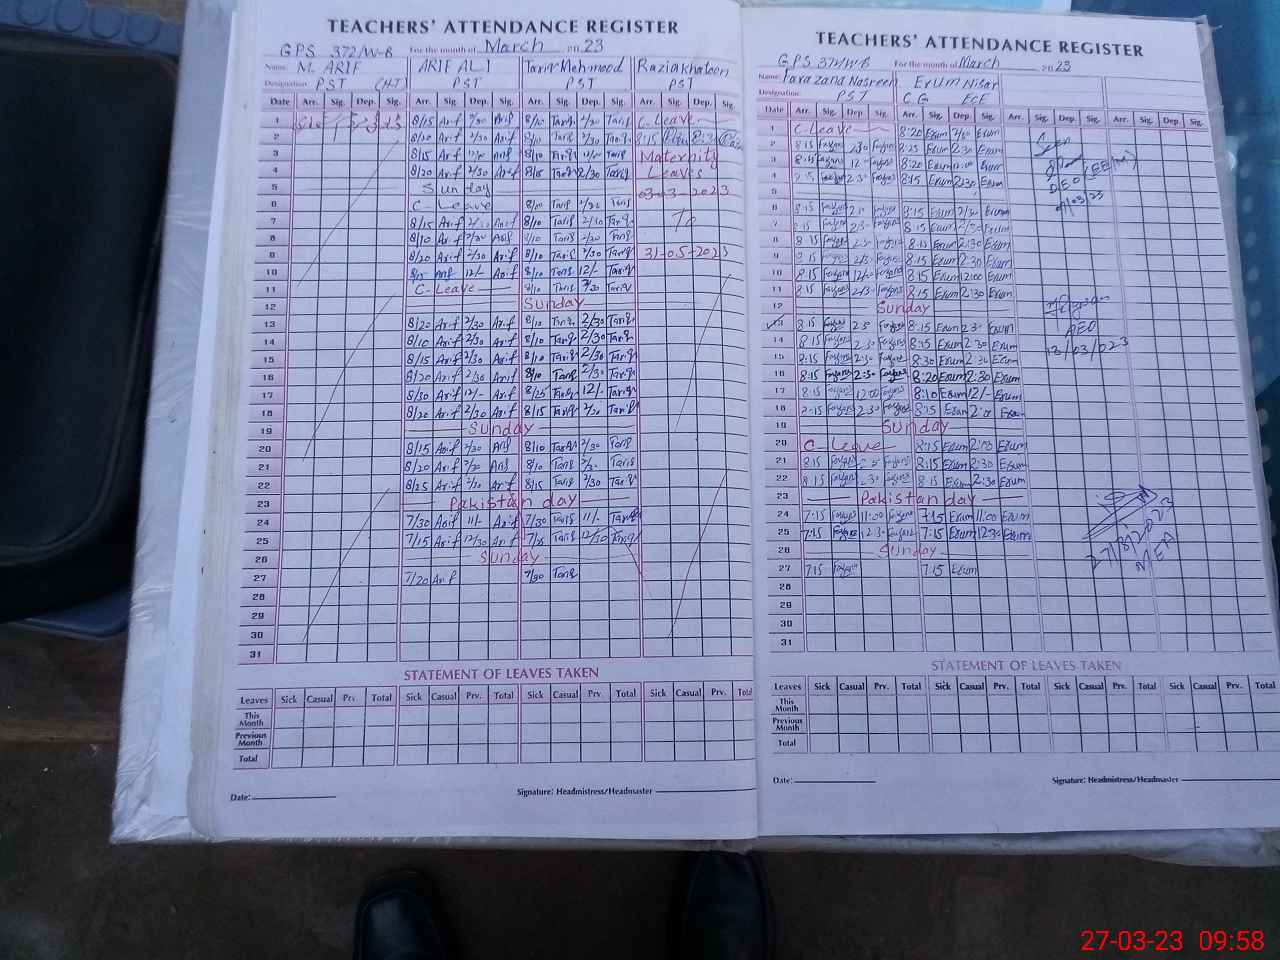 TEACHERS' ATTENDANCE REGISTER
GPS 372/W-B For the month of March 2023
Name: M. ARIF ARIF ALI Tariq Mehmood Razia khatoon
Designation PST (HT) PST PST PST
Date Arr. Sig. Dep. Sig. Arr. Sig. Dep. Sig. Arr. Sig. Dep. Sig. Arr. Sig. Dep. Sig.
1 8/15 Arif 2/30 Arif 8/10 Tariq 2/30 Tariq C-Leave
2 8/10 Arif 2/30 Arif 8/10 Tariq 2/30 Tariq 8:15
3 8/15 Arif 12/00 Arif 8/10 Tariq 12/00 Tariq Maternity
4 8/20 Arif 2/30 Arif 8/15 Tariq 2/30 Tariq Leaves
5 Sunday 03-03-2023
6 C-Leave 8/10 Tariq 2/30 Tariq
7 8/15 Arif 2/30 Arif 8/10 Tariq 2/30 Tariq To
8 8/10 Arif 2/30 Arif 8/10 Tariq 2/30 Tariq
9 8/20 Arif 2/30 Arif 8/10 Tariq 2/30 Tariq 31-05-2023
10 Arif 12/- Arif 8/10 Tariq 12/- Tariq
11 C-Leave 8/10 Tariq 2/30 Tariq
12 Sunday
13 8/20 Arif 2/30 Arif 8/10 Tariq 2/30 Tariq
14 8/10 Arif 2/30 Arif 8/10 Tariq 2/30 Tariq
15 8/15 Arif 2/30 Arif 8/10 Tariq 2/30 Tariq
16 8/20 Arif 2/30 Arif 8/10 Tariq 2/30 Tariq
17 8/30 Arif 12/- Arif 8/25 Tariq 12/- Tariq
18 8/20 Arif 2/30 Arif 8/15 Tariq 2/30 Tariq
19 Sunday
20 8/15 Arif 2/30 Arif 8/10 Tariq 2/30 Tariq
21 8/20 Arif 2/30 Arif 8/10 Tariq Tariq
22 8/25 Arif Arif 8/15 Tariq 2/30 Tariq
23 Pakistan day
24 7/30 Arif 11/- Arif 7/30 Tariq 11/- Tariq
25 7/15 Arif 12/30 Arif Tariq 12/30 Tariq
26 Sunday
27 7/20 Arif 7/30 Tariq
28
29
30
31
STATEMENT OF LEAVES TAKEN
Leaves Sick Casual Prv. Total Sick Casual Prv. Total Sick Casual Prv. Total Sick Casual Prv. Total
This Month
Previous Month
Total
Date: Signature: Headmistress/Headmaster
TEACHERS' ATTENDANCE REGISTER
GPS 372/W-B For the month of March 2023
Name: Farazana Nasreen Erum Nisar
Designation PST C G ECE
Date Arr. Sig. Dep Sig. Arr. Sig. Dep. Sig. Arr. Sig. Dep. Sig. Arr. Sig. Dep. Sig.
1 C-Leave 8:20 Erum 2/30 Erum Seen
2 8:15 2:30 8:25 Erum 2:30 Erum
3 8:15 12- 8:20 Erum Erum DEO (EE(M)
4 2:30 8:15 Erum 2:30 Erum
5
6 8:15 2:30 8:15 Erum 2/30 Erum
7 8:15 2:30 8:15 Erum 2/30 Erum
8 8:15 2:30 8:15 Erum 2:30 Erum
9 8:15 2:30 8:15 Erum 2:30 Erum
10 8:15 8:15 Erum 12:00 Erum
11 8:15 2:30 8:15 Erum 2:30 Erum
12 Sunday
13 8:15 8:15 Erum 2:30 Erum AEO
14 8:15 2:30 8:15 Erum 2:30 Erum 13/03/023
15 8:15 2:30 8:30 Erum 2:30 Erum
16 8:15 2:30 8:20 Erum 2:30 Erum
17 8:15 12:00 8:10 Erum 12/- Erum
18 2:30 8:15 Erum Erum
19 Sunday
20 C Leave 8:15 Erum Erum
21 8:15 8:15 Erum 2:30 Erum
22 8:15 2:30 8:15 Erum 2:30 Erum
23 Pakistan day
24 7:15 11:00 7:15 Erum 11:00 Erum
25 7:15 12:30 7:15 Erum 12:30 Erum
26 Sunday
27 7:15 7:15 Erum
28
29
30
31
MEA
STATEMENT OF LEAVES TAKEN
Leaves Sick Casual Prv. Total Sick Casual Prv. Total Sick Casual Prv. Total Sick Casual Prv. Total
This Month
Previous Month
Total
Date: Signature: Headmistress/Headmaster
27-03-23 09:58